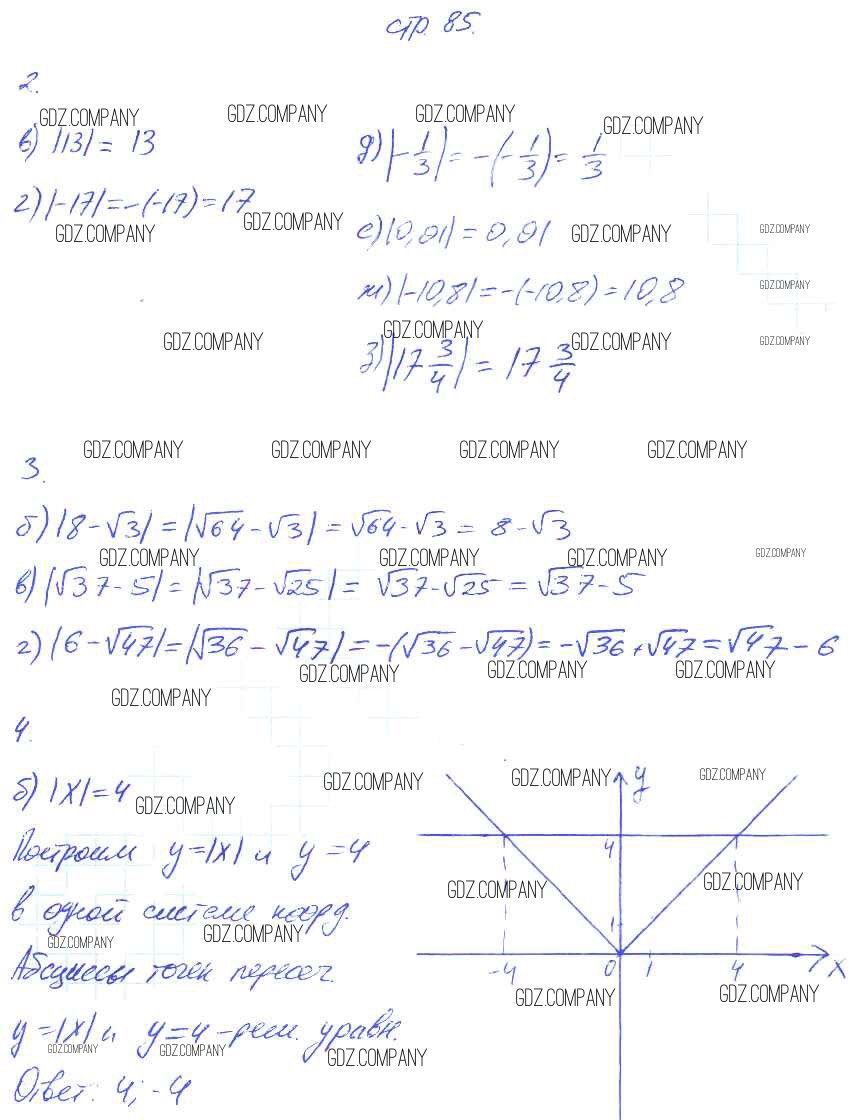 стр. 85.
2.
GDZ.COMPANY GDZ.COMPANY GDZ.COMPANY GDZ.COMPANY
в) |13| = 13
д) |-1/3| = -(-1/3) = 1/3
г) |-17| = -(-17) = 17
GDZ.COMPANY GDZ.COMPANY GDZ.COMPANY GDZ.COMPANY
е) |0,01| = 0,01
ж) |-10,8| = -(-10,8) = 10,8
GDZ.COMPANY
GDZ.COMPANY GDZ.COMPANY GDZ.COMPANY GDZ.COMPANY
з) |17 3/4| = 17 3/4
GDZ.COMPANY GDZ.COMPANY GDZ.COMPANY GDZ.COMPANY
3.
б) |8 - √3| = |√64 - √3| = √64 - √3 = 8 - √3
GDZ.COMPANY GDZ.COMPANY GDZ.COMPANY GDZ.COMPANY
в) |√37 - 5| = |√37 - √25| = √37 - √25 = √37 - 5
г) |6 - √47| = |√36 - √47| = -(√36 - √47) = -√36 + √47 = √47 - 6
GDZ.COMPANY GDZ.COMPANY GDZ.COMPANY GDZ.COMPANY
4.
б) |x| = 4
GDZ.COMPANY GDZ.COMPANY GDZ.COMPANY GDZ.COMPANY
Построим y = |x| и y = 4
в одной системе коорд.
GDZ.COMPANY GDZ.COMPANY GDZ.COMPANY GDZ.COMPANY
Абсциссы точек пересеч.
y = |x| и y = 4 - реш. уравн.
GDZ.COMPANY GDZ.COMPANY GDZ.COMPANY GDZ.COMPANY GDZ.COMPANY
Ответ: 4; -4
y
4
1
-4 0 1 4 x